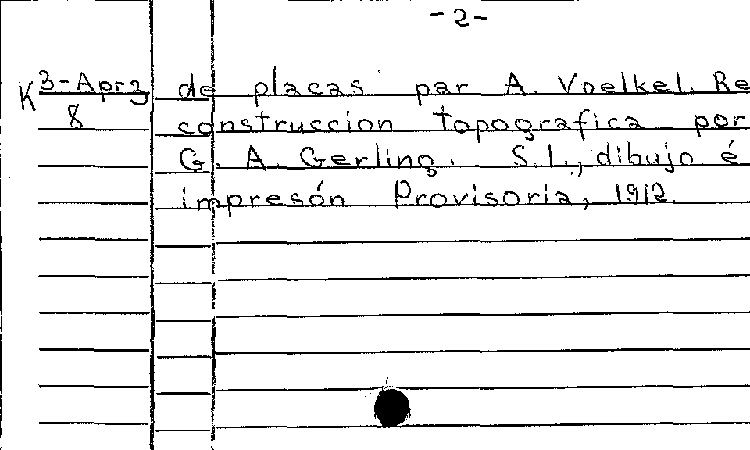 -2-
K 3-Apr3 de placas par A. Voelkel. Re
8 construccion topografica por
G. A. Gerling. S.I., dibujo é
impresón Provisoria, 1912.